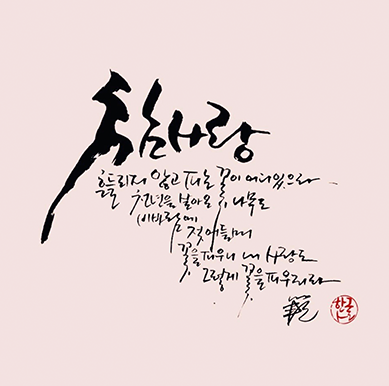 참사랑
흔들리지 않고 피는 꽃이 어디 있으랴
천년을 불어온 나무도
비바람에
젖어들며
꽃을 피우니 내 사랑도
그렇게 꽃을 피우리라
한글